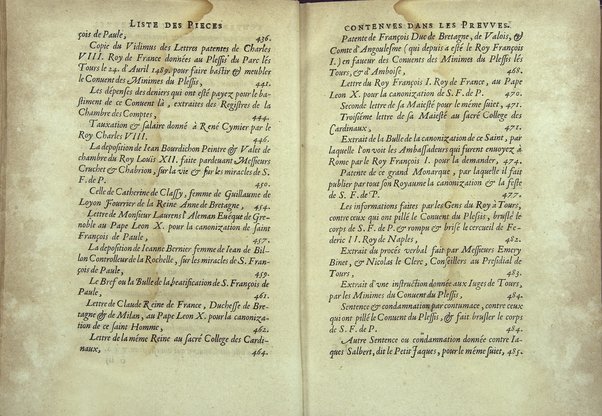 LISTE DES PIECES
çois de Paule, 436.
Copie du Vidimus des Lettres patentes de Charles
VIII. Roy de France données au Plessis du Parc lés
Tours le 24. d'Auril 1489. pour faire bastir & meubler
le Conuent des Minimes du Plessis, 441.
Les dépenses des deniers qui ont esté payez pour le ba-
stiment de ce Conuent là, extraites des Registres de la
Chambre des Comptes, 444.
Tauxation & salaire donné à René Cymier par le
Roy Charles VIII. 446.
La deposition de Iean Bourdichon Peintre & Valet de
chambre du Roy Louis XII. faite pardeuant Messieurs
Cruchet & Chabrion, sur la vie & sur les miracles de S.
F. de P. 450.
Celle de Catherine de Classy, femme de Guillaume de
Loyon Fourrier de la Reine Anne de Bretagne,
Lettre de Monsieur Laurens l'Aleman Euéque de Gre-
noble au Pape Leon X. pour la canonization de saint
François de Paule, 457.
La deposition de Ieanne Bernier femme de Iean de Bil-
lon Controlleur de la Rochelle, sur les miracles de S. Fran-
çois de Paule, 459.
Le Bref ou la Bulle de la beatification de S. François de
Paule, 461.
Lettre de Claude Reine de France, Duchesse de Bre-
tagne & de Milan, au Pape Leon X. pour la canoniza-
tion de ce saint Homme, 462.
Lettre de la même Reine au sacré College des Cardi-
naux, 464.
CONTENVES DANS LES PREVVES.
Patente de François Duc de Bretagne, de Valois, &
Comte d'Angoulesme (qui depuis a esté le Roy François
I.) en faueur des Conuens des Minimes du Plessis lés
Tours, & d'Amboise, 468.
Lettre du Roy François I. Roy de France, au Pape
Leon X. pour la canonization de S. F. de P. 470.
Seconde lettre de sa Maiesté pour le même suiet, 471.
Troisiéme lettre de sa Maiesté au sacré College des
Cardinaux, 471.
Extrait de la Bulle de la canonization de ce Saint, par
laquelle l'on voit les Ambassadeurs qui furent enuoyez à
Rome par le Roy François I. pour la demander, 474.
Patente de ce grand Monarque, par laquelle il fait
publier par tout son Royaume la canonization & la feste
de S. F. de P. 477.
Les informations faites par les Gens du Roy à Tours,
contre ceux qui ont pillé le Conuent du Plessis, bruslé le
corps de S. F. de P. & rompu & brisé le cercueil de Fe-
deric II. Roy de Naples, 482.
Extrait du procés verbal fait par Messieurs Emery
Binet, & Nicolas le Clerc, Conseillers au Presidial de
Tours, 483.
Extrait d'vne instruction donnée aux Iuges de Tours,
par les Minimes du Conuent du Plessis, 484.
Sentence & condamnation par contumace, contre ceux
qui ont pillé le Conuent du Plessis, & fait brusler le corps
de S. F. de P. 484.
Autre Sentence ou condamnation donnée contre Ia-
ques Salbert, dit le Petit Iaques, pour le même suiet, 485.